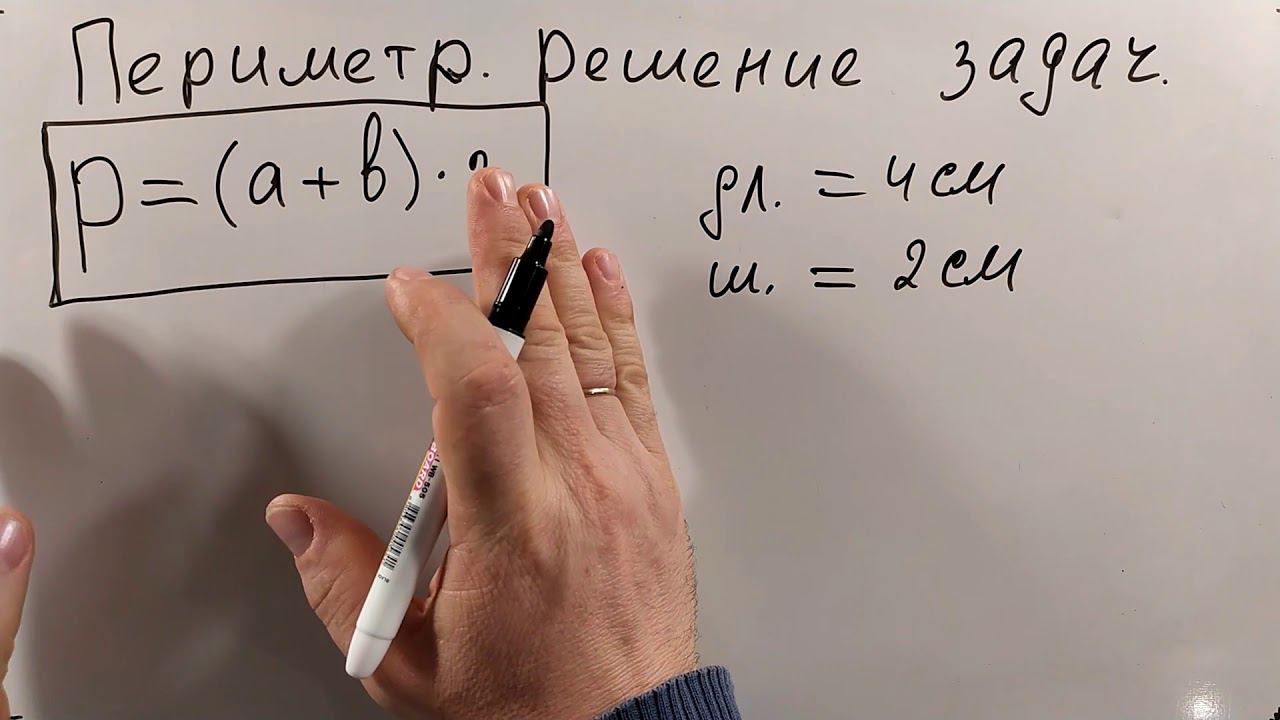 Периметр. решение задач.
P=(a+b)·
дл. = 4 см
ш. = 2 см
WB-505